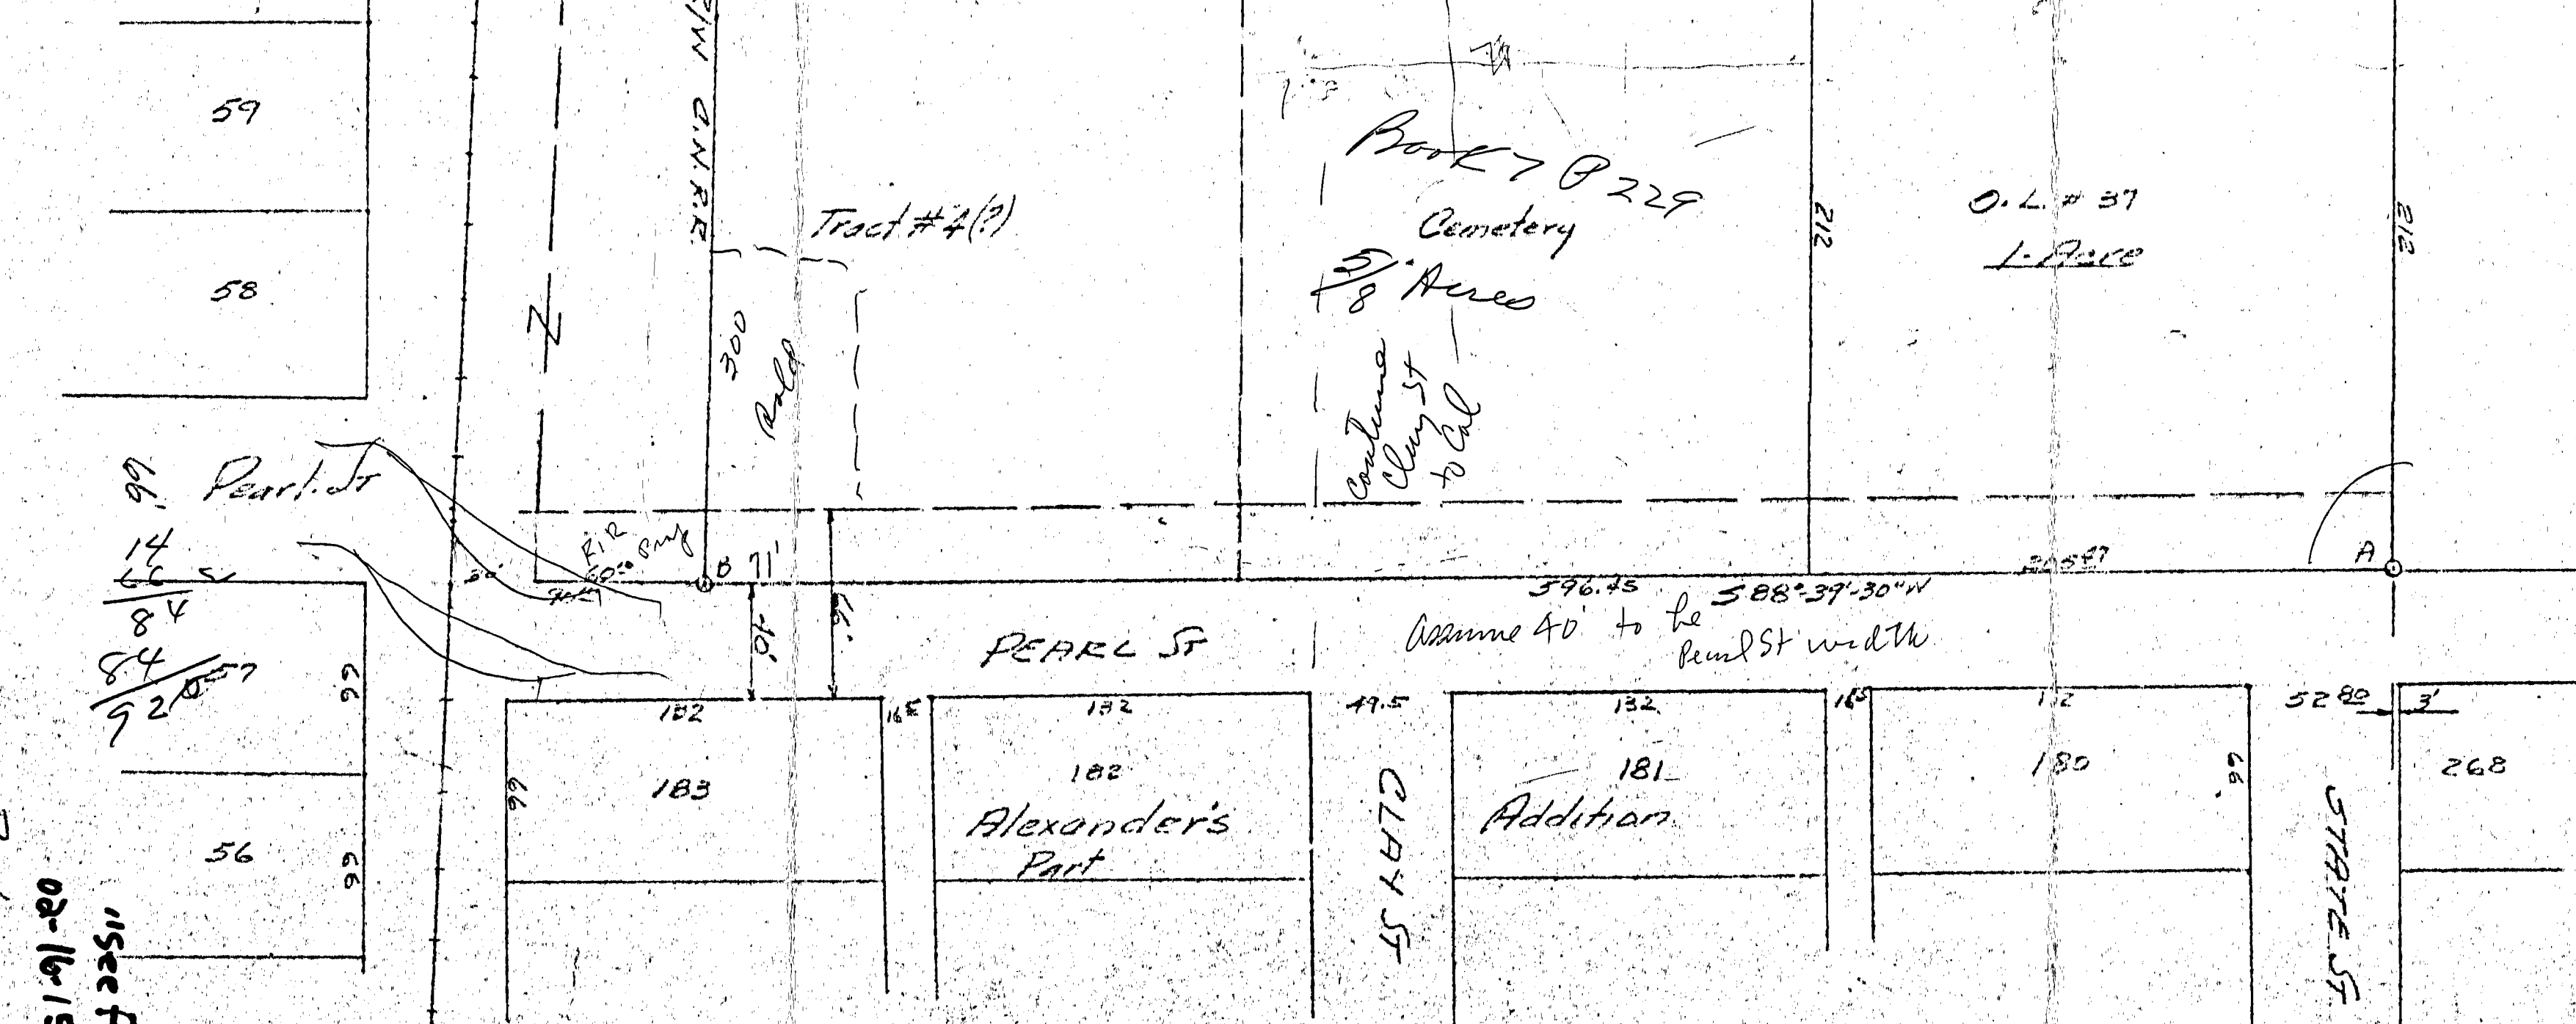 59
58
R/W G.N.R.R.
300
Tract #4(?)
Book 7 P 229
Cemetery
5/8 Acres
Continue
Clay St
to Cal
212
O.L. # 37
1-Acre
212
66
Pearl St
14
66
84
84
92
57
66
66
56
R/R
B
71'
40'
66'
PEARL ST
596.45
S 88°-39'-30" W
205.87
A
Assume 40' to be
Pearl St width
132
16.5
132
49.5
132
16.5
132
52.80
3'
183
66
182
Alexander's
Part
CLAY ST
181
Addition
180
66
STATE ST
268